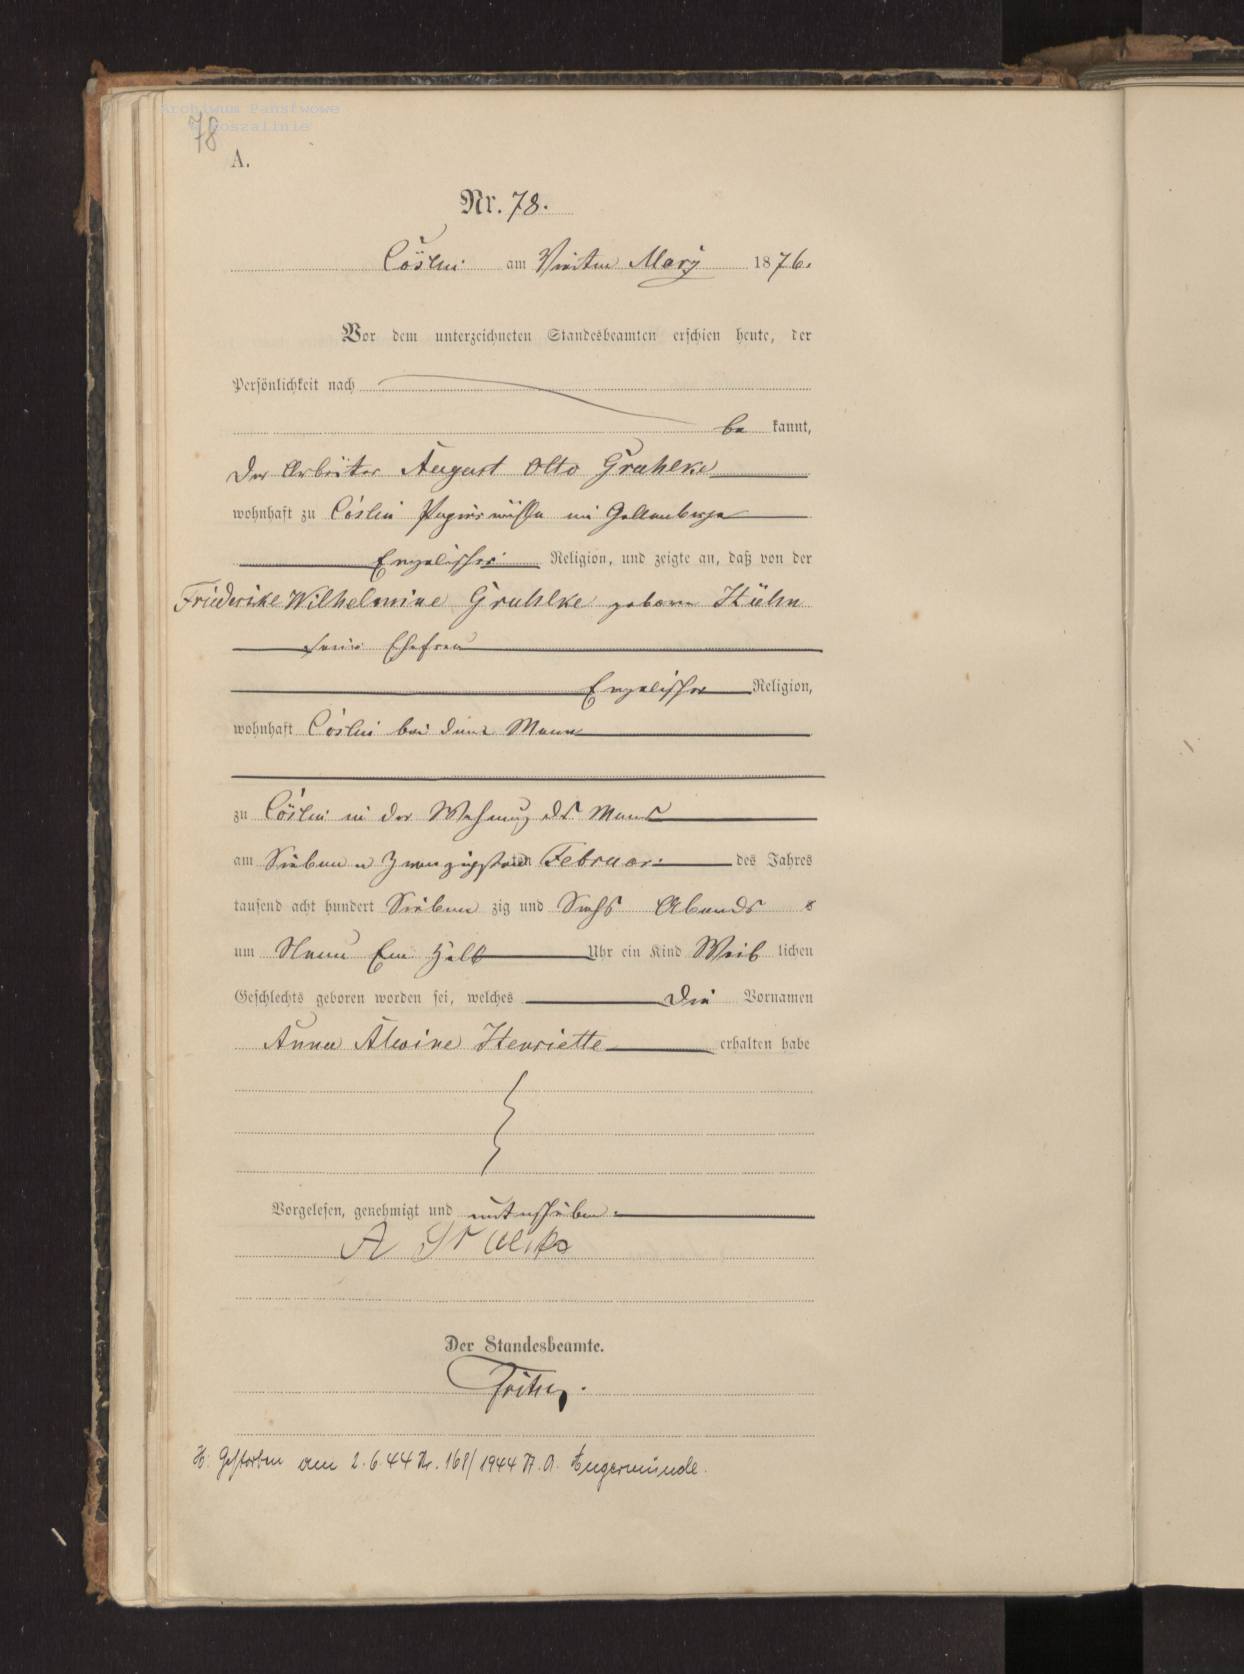 Archiwum Państwowe
w Koszalinie
78
A.
Nr. 78.
Cöslin am Vierten März 1876.
Vor dem unterzeichneten Standesbeamten erschien heute, der
Persönlichkeit nach
be kannt,
Der Arbeiter August Otto Gruhlke
wohnhaft zu Cöslin Papiermühle im Gollenberge
Evngelischer Religion, und zeigte an, daß von der
Friederike Wilhelmine Gruhlke geborne Kühn
seine Ehefrau
Evngelischer Religion,
wohnhaft Cöslin bei dem Mann
zu Cöslin in der Wohnung des Manns
am Sieben u Zwanzigsten ten Februar des Jahres
tausend acht hundert Sieben zig und Sechs Abends
um Neun Ein halb Uhr ein Kind Weib lichen
Geschlechts geboren worden sei, welches Die Vornamen
Anna Alwine Henriette erhalten habe
Vorgelesen, genehmigt und unterschrieben
A Gruhlke
Der Standesbeamte.
H. Gestorben am 2.6.44 Nr. 168/1944 St. A. Angermünde.